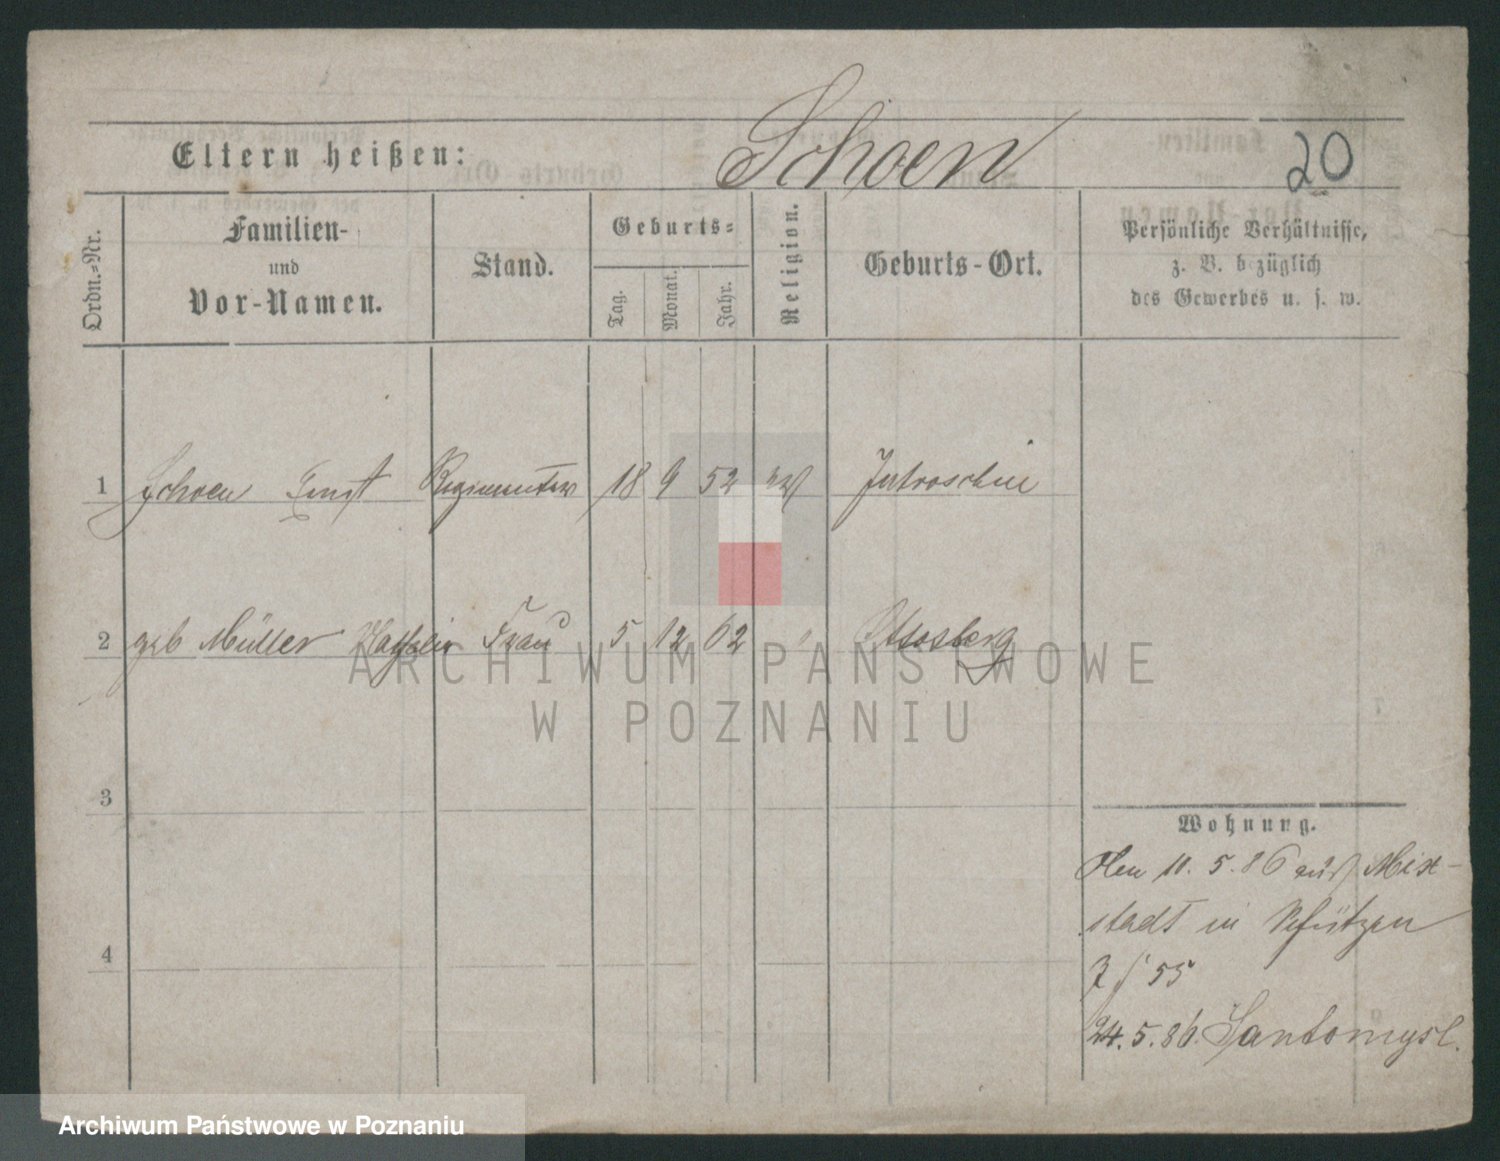 Schoen
20
Eltern heißen:
Ordn.-Nr.
Familien-
und
Vor-Namen.
Stand.
Geburts-
Tag.
Monat.
Jahr.
Religion.
Geburts-Ort.
Persönliche Verhältnisse,
z. B. bezüglich
des Gewerbes u. s. w.
1 Schoen Ernst 18 9 52 Jutroschin
2 geb Müller Frau 5 12 62
3
4
Wohnung.
Den 10. 5. 86 aus Mix-
stadt in Schützen
55
24. 5. 86. Santomysl.
ARCHIWUM PAŃSTWOWE
W POZNANIU
Archiwum Państwowe w Poznaniu